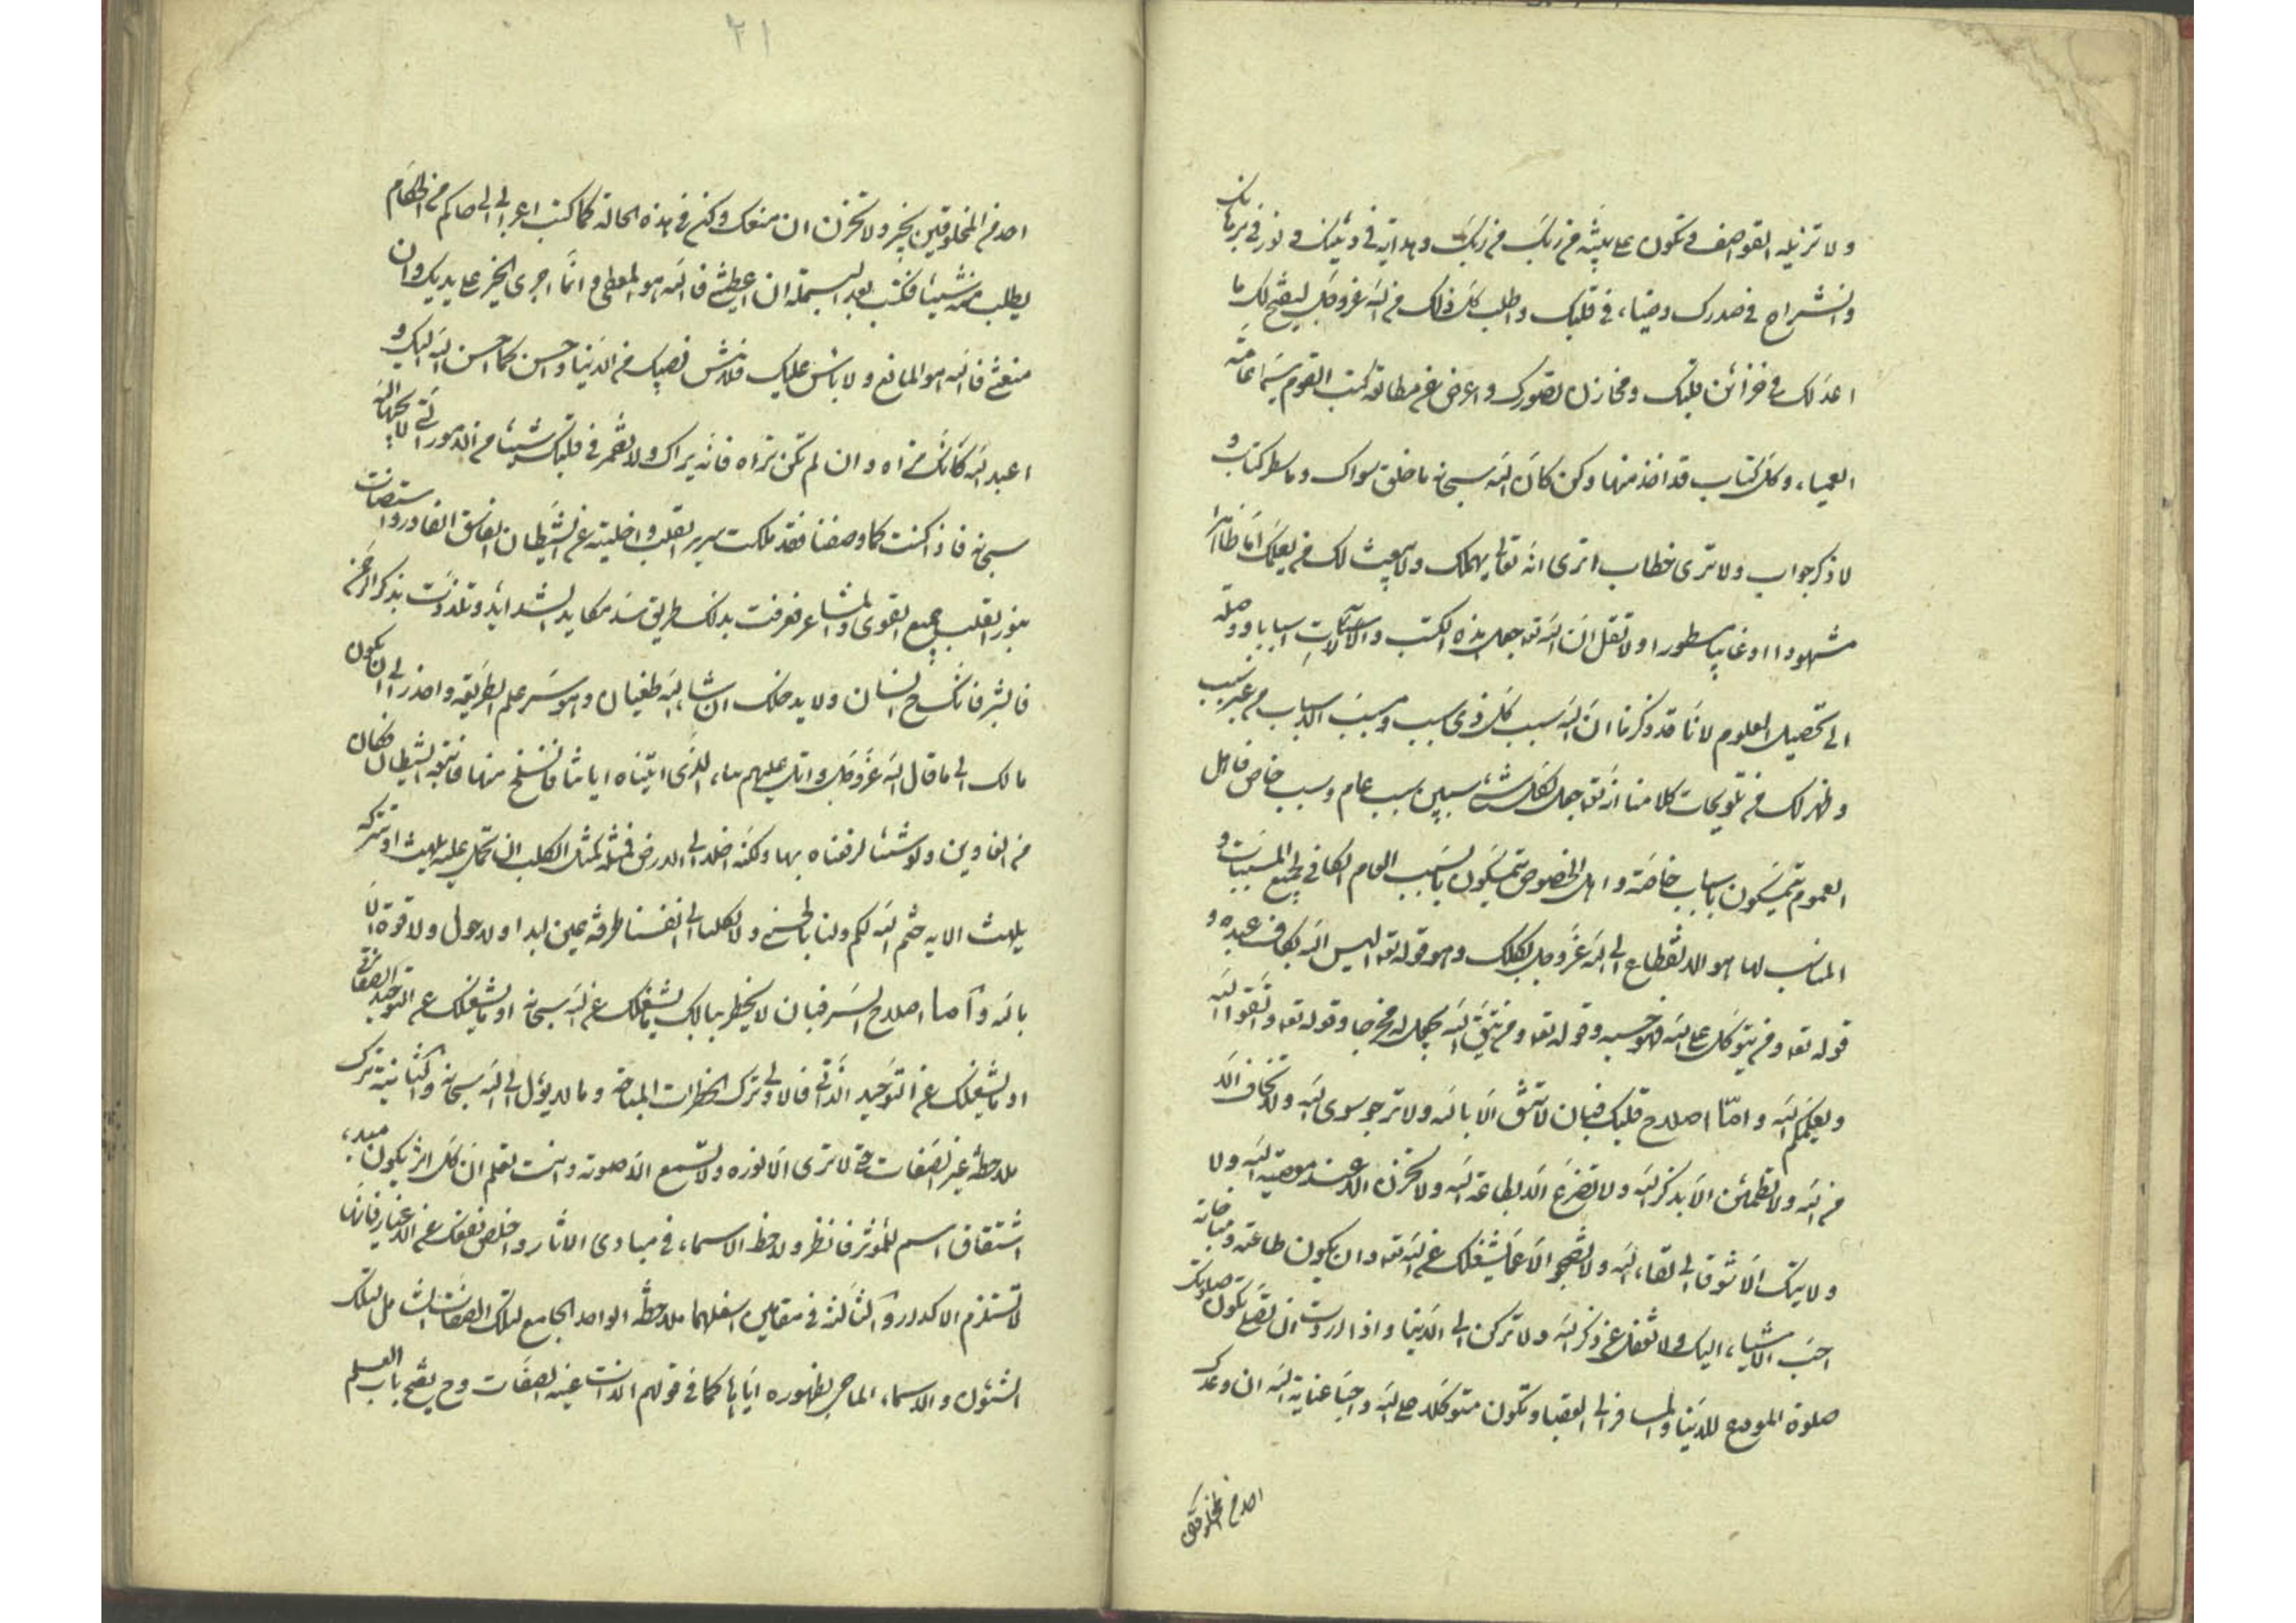 ولا تزيله القواصف وتكون على بينة من ربك وهداية في دينك ونور في برهانك
وانشراح في صدرك وضياء في قلبك واطلب كل ذلك من الله عز وجل ليفتح لك ما
اعد لك في خزائن قلبك ومخازن تصورك واعرض عن مطالعة كتب القوم سيما عامة
العمياء وكل كتاب قد اخذ منها وكن كأن الله سبحانه ما خلق سواك وما سطر كتاب و
لا ذكر جواب ولا ترى خطاب اترى انه تعالى يهملك ولا يبعث لك من يعلمك اما ظاهرا
مشهودا او غايبا مستورا ولا تقل ان الله تعالى جعل هذه الكتب والآلات اسبابا ووصلة
الى تحصيل العلوم لانا قد ذكرنا ان الله سبب كل ذي سبب ومسبب الاسباب من غير سبب
وظهر لك من تلويحات كلامنا انه تعالى جعل لكل شيء سببين سبب عام وسبب خاص فاهل
العموم يتمسكون باسباب خاصة واهل الخصوص يتمسكون بالسبب العام الكافي لجميع المسببات و
المناسب لها هو الانقطاع الى الله عز وجل بكلك وهو قوله تعالى اليس الله بكاف عبده و
قوله تعالى ومن يتوكل على الله فهو حسبه وقوله تعالى ومن يتق الله يجعل له مخرجا وقوله تعالى واتقوا الله
ويعلمكم الله واما اصلاح قلبك فبان لا تثق الا بالله ولا ترجو سوى الله ولا تخاف الا
من الله ولا تطمئن الا بذكر الله ولا تفرح الا بطاعة الله ولا تحزن الا عند معصية الله ولا
ولا يبك الا شوقا الى لقاء الله ولا تضجر الا عما يشغلك عن الله تعالى وان يكون طاعته ومناجاته
احب الاشياء اليك ولا تغفل عن ذكر الله ولا تركن الى الدنيا واذا اردت ان تصلي تكون صلوتك
صلوة المودع للدنيا والمسافر الى العقبى وتكون متوكلا على الله واجبا عناية الله ان وعدك
احد من المخلوقين
٢١
احد من المخلوقين بخير ولا تحزن ان منعك وكن في هذه الحالة كما كتب اعرابي الى حاكم من الحكام
يطلب منه شيئا فكتب بعد البسملة ان اعطيتني فالله هو المعطي وانما اجرى الخير على يديك وان
منعتني فالله هو المانع ولا باس عليك فلا تنس نصيبك من الدنيا واحسن كما احسن الله اليك و
اعبد الله كانك تراه وان لم تكن تراه فانه يراك ولا تضمر في قلبك شيئا من الامور التي لا يحبها الله
سبحانه فاذا كنت كما وصفنا فقد ملكت سرير القلب واخليته عن الشيطان الفاسق الغادر واستضاءت
بنور القلب جميع القوى والمشاعر فعرفت بذلك طريق سد مكايد الشدايد وتلذذت بذكر الرحمن
فابشر فانك ح انسان ولا يدخلك ان شاء الله طغيان وهو سر علم الطريقة واحذر الى ان يكون
مالك الى ما قال الله عز وجل واتل عليهم نبأ الذي اتيناه اياتنا فانسلخ منها فاتبعه الشيطان فكان
من الغاوين ولو شئنا لرفعناه بها ولكنه اخلد الى الارض فمثله كمثل الكلب ان تحمل عليه يلهث او تتركه
يلهث الاية ختم الله لكم ولنا بالحسنى ولا يكلنا الى انفسنا طرفة عين ابدا ولا حول ولا قوة الا
بالله واما اصلاح السر فبان لا يخطر ببالك ما يشغلك عن الله سبحانه او ما يشغلك عن التوحيد الصفاتي
او ما يشغلك عن التوحيد الذاتي فالاولى ترك الخطرات المباحة وما لا يؤل الى الله سبحانه والثانية ترك
ملاحظة غير الصفات حتى لا ترى الا نوره ولا تسمع الا صوته وانت تعلم ان كل اثر يكون مبدء
اشتقاق اسم للمؤثر فانظر ولاحظ الاسماء في مبادي الاثار واخلص نفسك عن الاغيار فانها
تستلزم الاكدار والثالثة في مقامين اسفلهما ملاحظة الواحد الجامع لتلك الصفات الشامل لتلك
الشئون والاسماء الماحي بظهوره اياها كما في قولهم الذات غيبت الصفات وح يفتح باب العلم